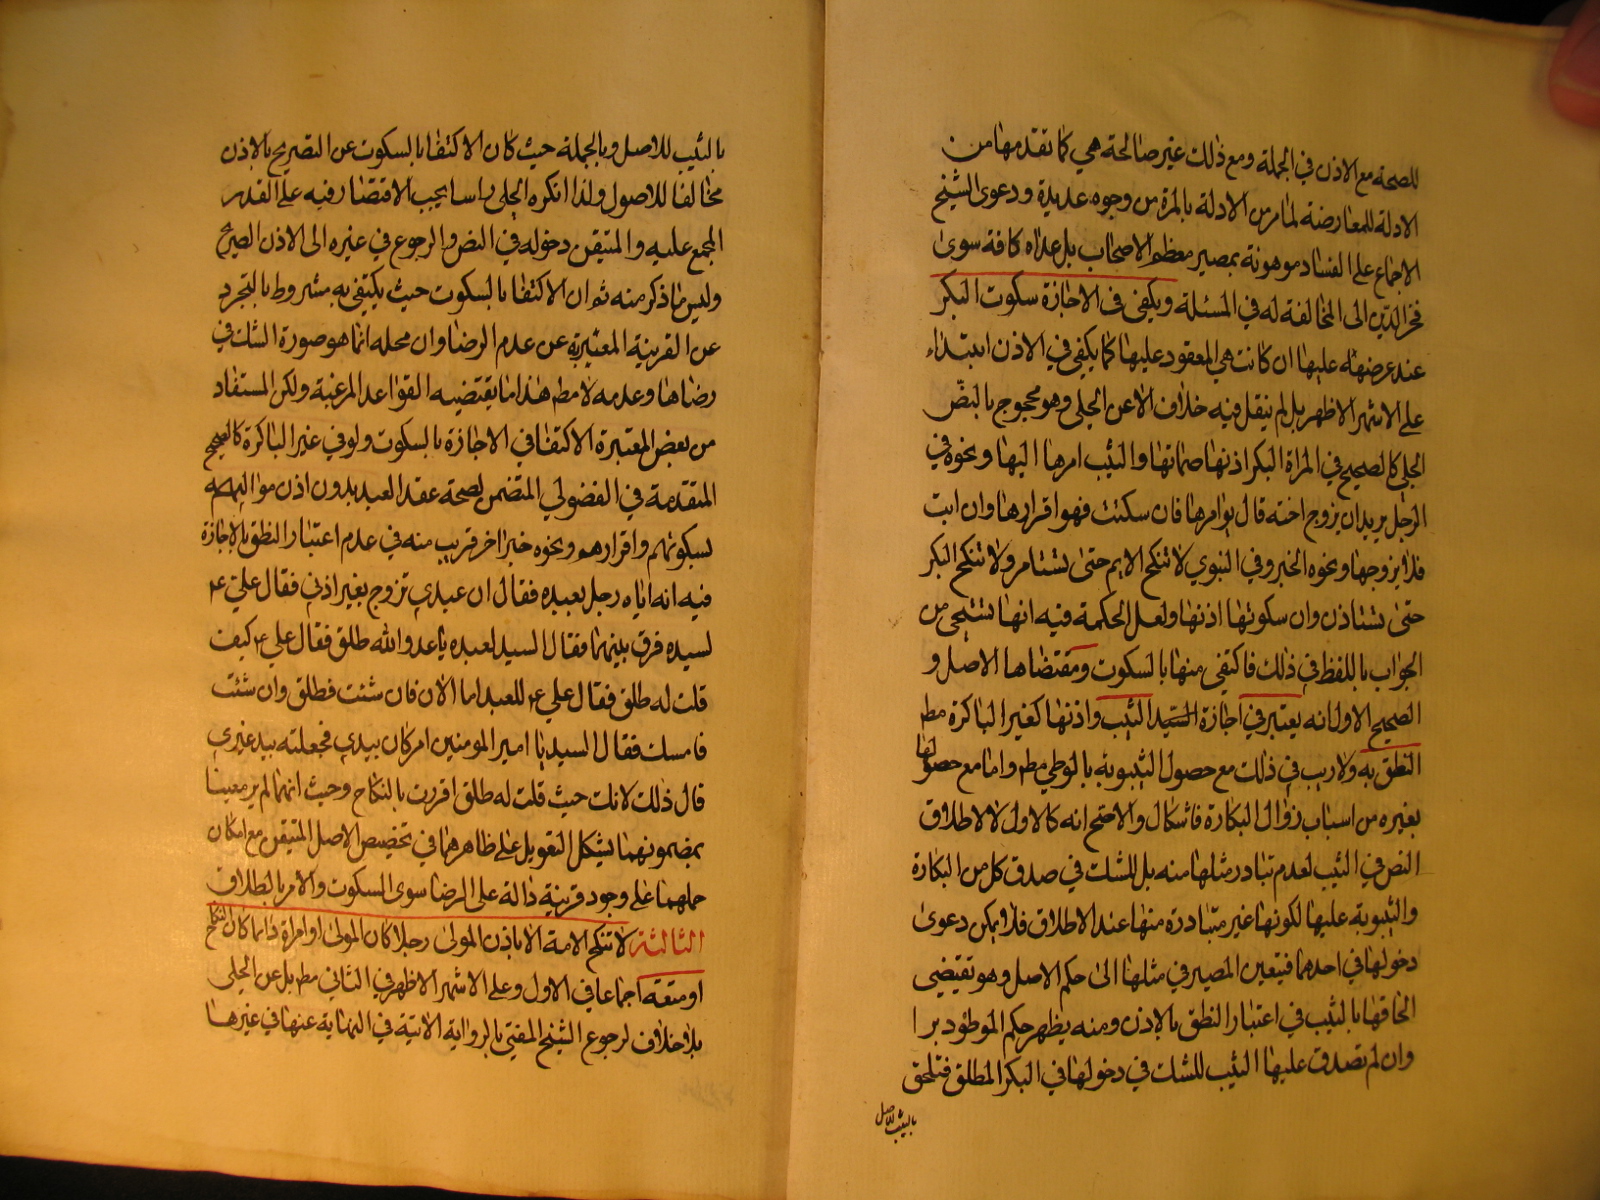 للصحة مع الاذن في الجملة ومع ذلك غير صالحة هي كما تقدمها من
الادلة للمعارضة لما مر من الادلة بالمرة من وجوه عديدة ودعوى الشيخ
الاجماع على الفساد موهونة بمصير معظم الاصحاب بل عداه كافة سوى
فخر الدين الى المخالفة له في المسئلة ويكفى فى الاجازة سكوت البكر
عند عرضها عليها ان كانت هي المعقود عليها كما يكفي في الاذن ابتداء
على الاشهر الاظهر بل لم ينقل فيه خلاف الا عن الحلى وهو محجوج بالنصّ
الجلي كالصحيح في المراة البكر اذنها صماتها والثيب امرها اليها ونحوه في
الرجل يريد ان يزوج اخته قال يوامرها فان سكتت فهو اقرارها وان ابت
فلا يزوجها ونحوه الخبر وفي النبوي لا تنكح الايم حتى تستامر ولا تنكح البكر
حتى تستاذن وان سكوتها اذنها ولعل الحكمة فيه انها تستحي من
الجواب باللفظ في ذلك فاكتفى منها بالسكوت ومقتضاها الاصل و
الصحيح الاول انه يعتبر في اجازة السيد الثيب واذنها كغير الباكرة مط
النطق به ولا ريب في ذلك مع حصول الثيبوبة بالوطي مط واما مع حصولها
بغيره من اسباب زوال البكارة فاشكال والاصح انه كالاول لا لاطلاق
النص في الثيب لعدم تبادر مثلها منه بل للشك في صدق كل من البكارة
والثيبوبة عليها لكونها غير متبادرة منها عند الاطلاق فلا يمكن دعوى
دخولها في احدهما فيتعين المصير في مثلها الى حكم الاصل وهو تقتضى
الحاقها بالثيب في اعتبار النطق بالاذن ومنه يظهر حكم الموطوء دبرا
وان لم تصدق عليها الثيب للشك في دخولها في البكر المطلق فتلحق
بالثيب للاصل
بالثيب للاصل وبالجملة حيث كان الاكتفا بالسكوت عن التصريح بالاذن
مخالفا للاصول ولذا انكره الحلى راسا يجب الاقتصار فيه على القدر
المجمع عليه والمتيقن دخوله في النص والرجوع في غيره الى الاذن الصريح
وليس ما ذكر منه ثم ان الاكتفا بالسكوت حيث يكتفى به مشروط بالتجرد
عن القرينة المعتبرة عن عدم الرضا وان محله انما هو صورة الشك في
رضاها وعدمه لا مط هذا ما يقتضيه القواعد المرعية ولكن المستفاد
من بعض المعتبرة الاكتفا في الاجازة بالسكوت ولو في غير الباكرة كالصحيح
المتقدمة في الفضولي المتضمن لصحة عقد العبد بدون اذن مواليه
بسكوتهم واقرارهم ونحوه خبر اخر قريب منه في عدم اعتبار النطق بالاجازة
فيه انه اتاه رجل بعبده فقال ان عبدي تزوج بغير اذني فقال علي ع
لسيده فرق بينهما فقال السيد لعبده يا عدو الله طلق فقال علي ع كيف
قلت له طلق فقال علي ع للعبد اما الان فان شئت فطلق وان شئت
فامسك فقال السيد يا امير المومنين امر كان بيدي فجعلته بيد غيري
قال ذلك لانك حيث قلت له طلق اقررت بالنكاح وحيث انهما لم ير معينا
بمضمونهما يشكل التعويل على ظاهرهما في تخصيص الاصل المتيقن مع امكان
حملهما على وجود قرينة دالة على الرضا سوى السكوت والامر بالطلاق
الثالثة لا تنكح الامة الا باذن المولى رجلا كان المولى او امراة دائما كان النكاح
او متعة اجماعا في الاول وعلى الاشهر الاظهر في الثاني مط بل عن الحلى
بلا خلاف لرجوع الشيخ المفتي بالرواية الاتية في النهاية عنها في غيرها